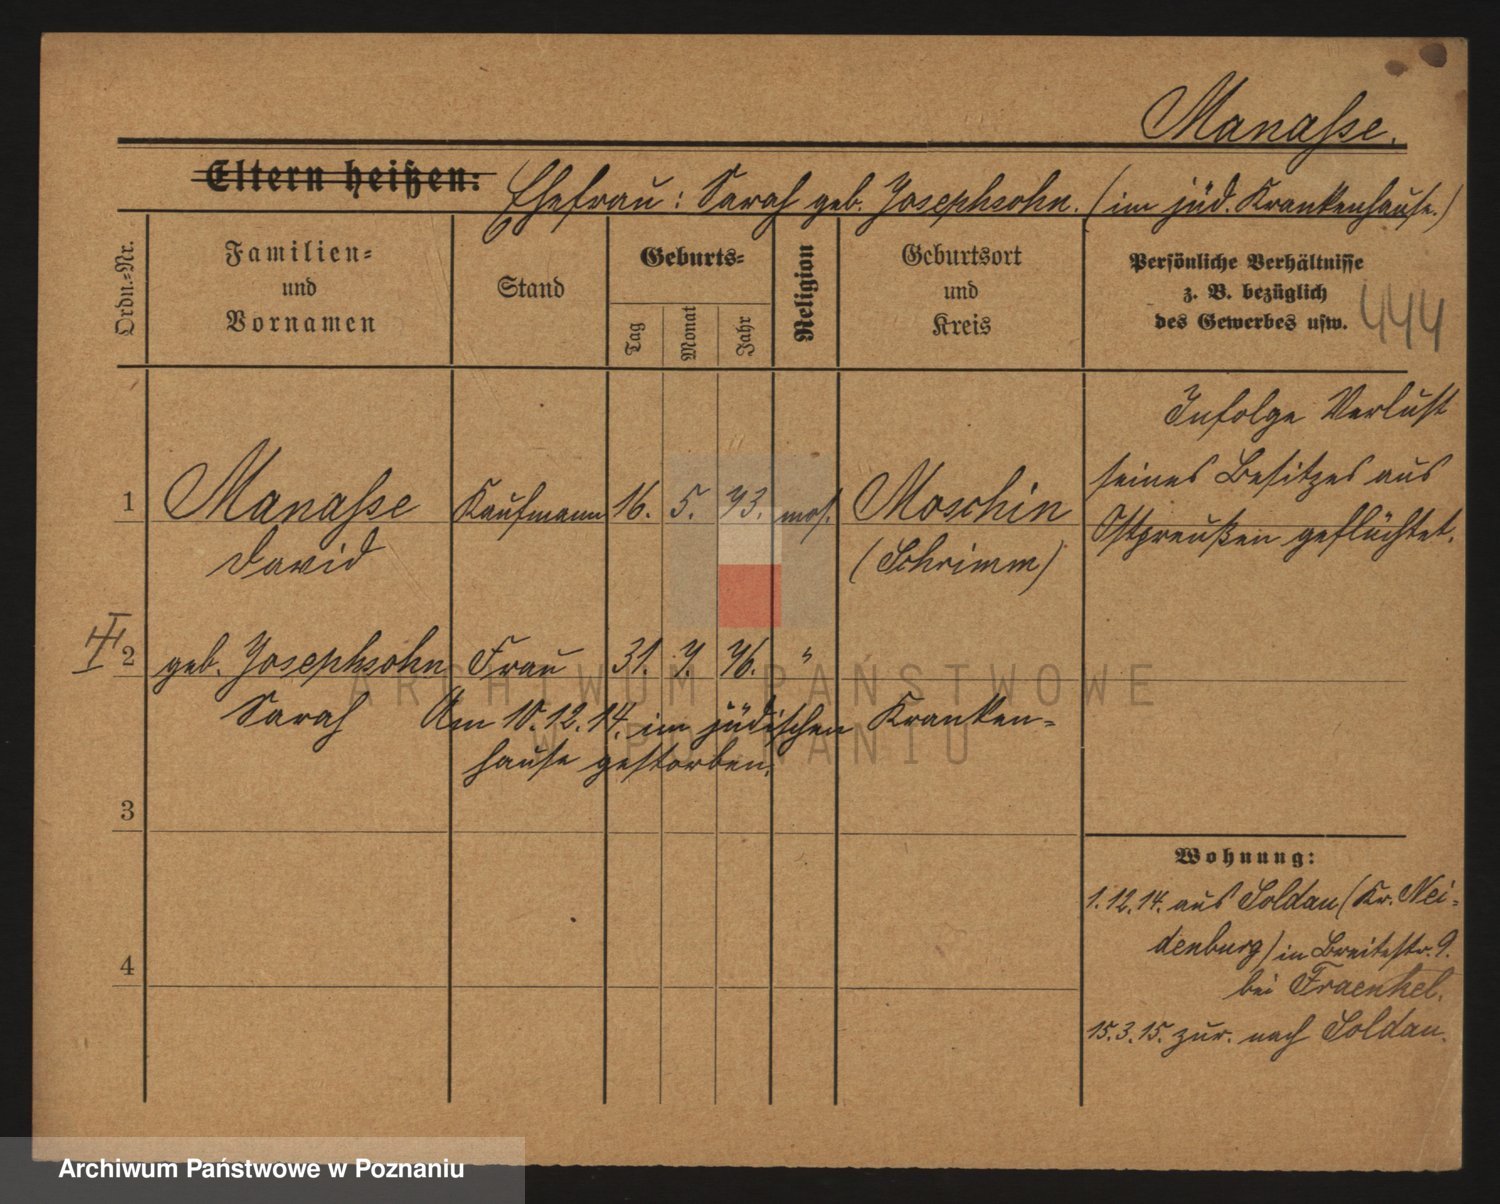 Manasse.
Eltern heißen: Ehefrau: Sarah geb. Josephsohn. (im jüd. Krankenhause.)
Ordn.-Nr.
Familien-
und
Vornamen
Stand
Geburts-
Tag
Monat
Jahr
Religion
Geburtsort
und
Kreis
Persönliche Verhältnisse
z. B. bezüglich
des Gewerbes usw.
444
1 Manasse Kaufmann 16. 5. 73. mos. Moschin
David (Schrimm)
Infolge Verlust
seines Besitzes aus
Ostpreußen geflüchtet.
2 geb. Josephsohn Frau 31. 7. 76. "
Sarah Am 10.12.14. im jüdischen Kranken-
hause gestorben.
3
4
Wohnung:
1.12.14. aus Soldau (Kr. Nei-
denburg) in Breitestr. 9.
bei Fraenkel.
15.3.15. zur. nach Soldau.
ARCHIWUM PAŃSTWOWE
W POZNANIU
Archiwum Państwowe w Poznaniu